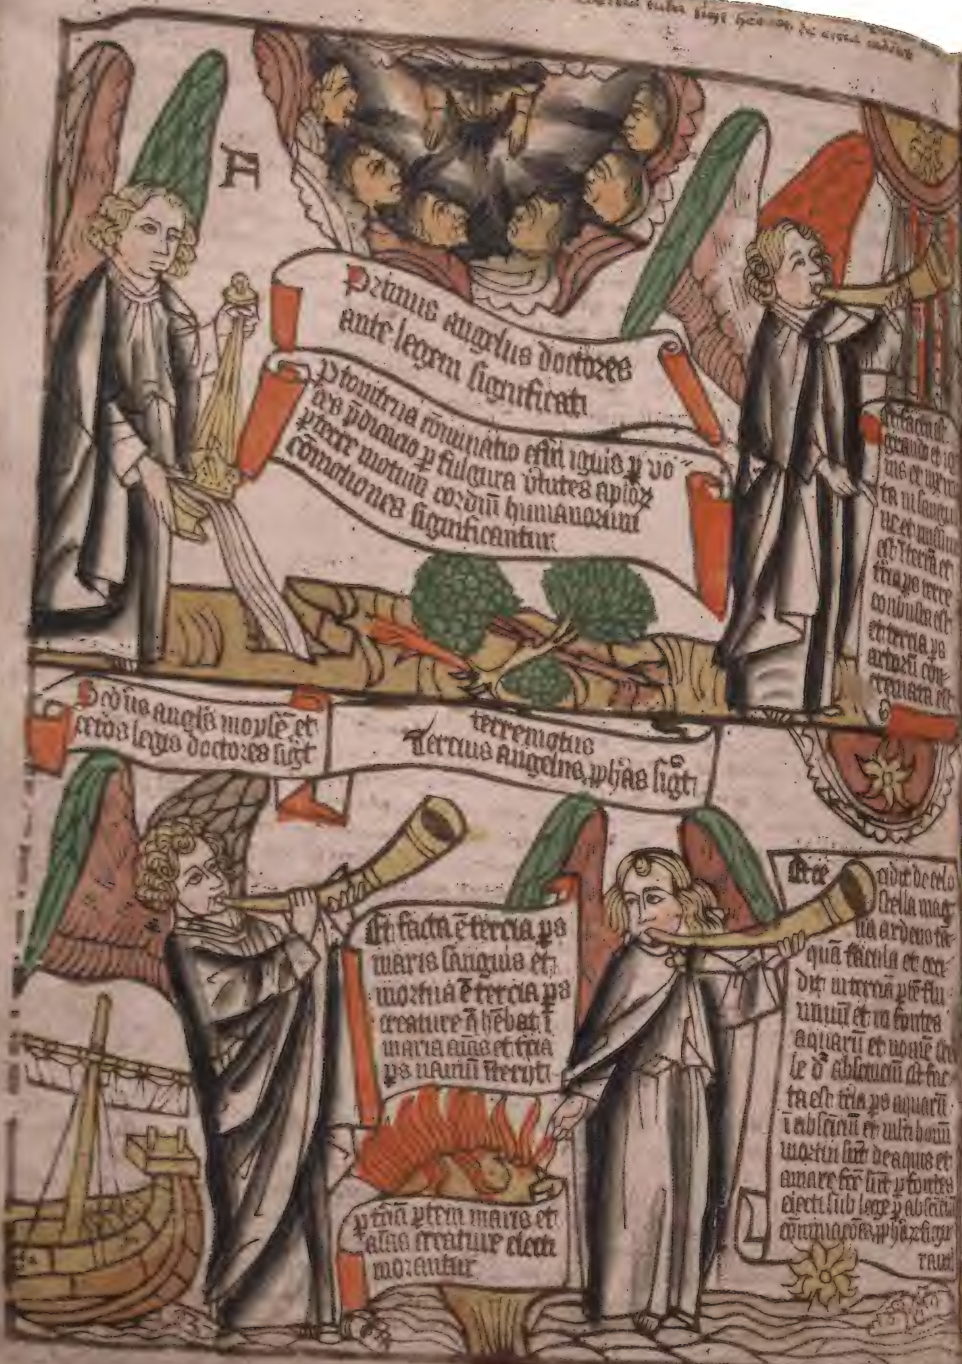 A
Primus angelus doctores
ante legem significati
p tonitrua cōminatio et̄ni iguis p vo
ces p̄dicacio p fulgura v̄tutes aplōꝝ
p terre motum cordiū humanorum
cōmotiones significantur
et facta est
grando et ig
nis et mixta
ta in sangui
ne et missum
est ī terrā et
t̄cia ps terre
conbusta est
et tercia ps
arborū con
cremata est
Secūs angl̄s moysē et
cetos legis doctores sigt
terremotus
Tercius angelus, ꝓph̄as sigt̄
Et facta ē tercia ps
maris sanguis et
mortua ē tercia ps
creature q̄ h̄ebat ī
maria aīas et t̄cia
ps nauiū īterijt
p t̄ciā ptem maris et
aīas creature electi
morantur
Et ce
cidit de celo
stella mag
na ardens tā
quā facula et ceci
dit in terciā ptē flu
uiuū et in fontes
aquarū et nomē stel
le d̄r absinciū et fac
ta est t̄cia ps aquarū
ī absīciū et multi homī
mortui sūt de aquis et
amare fc̄e sūt p fontes
electi sub lege p absinciū
cōminacōes, ꝓph̄aꝝ figu
rant